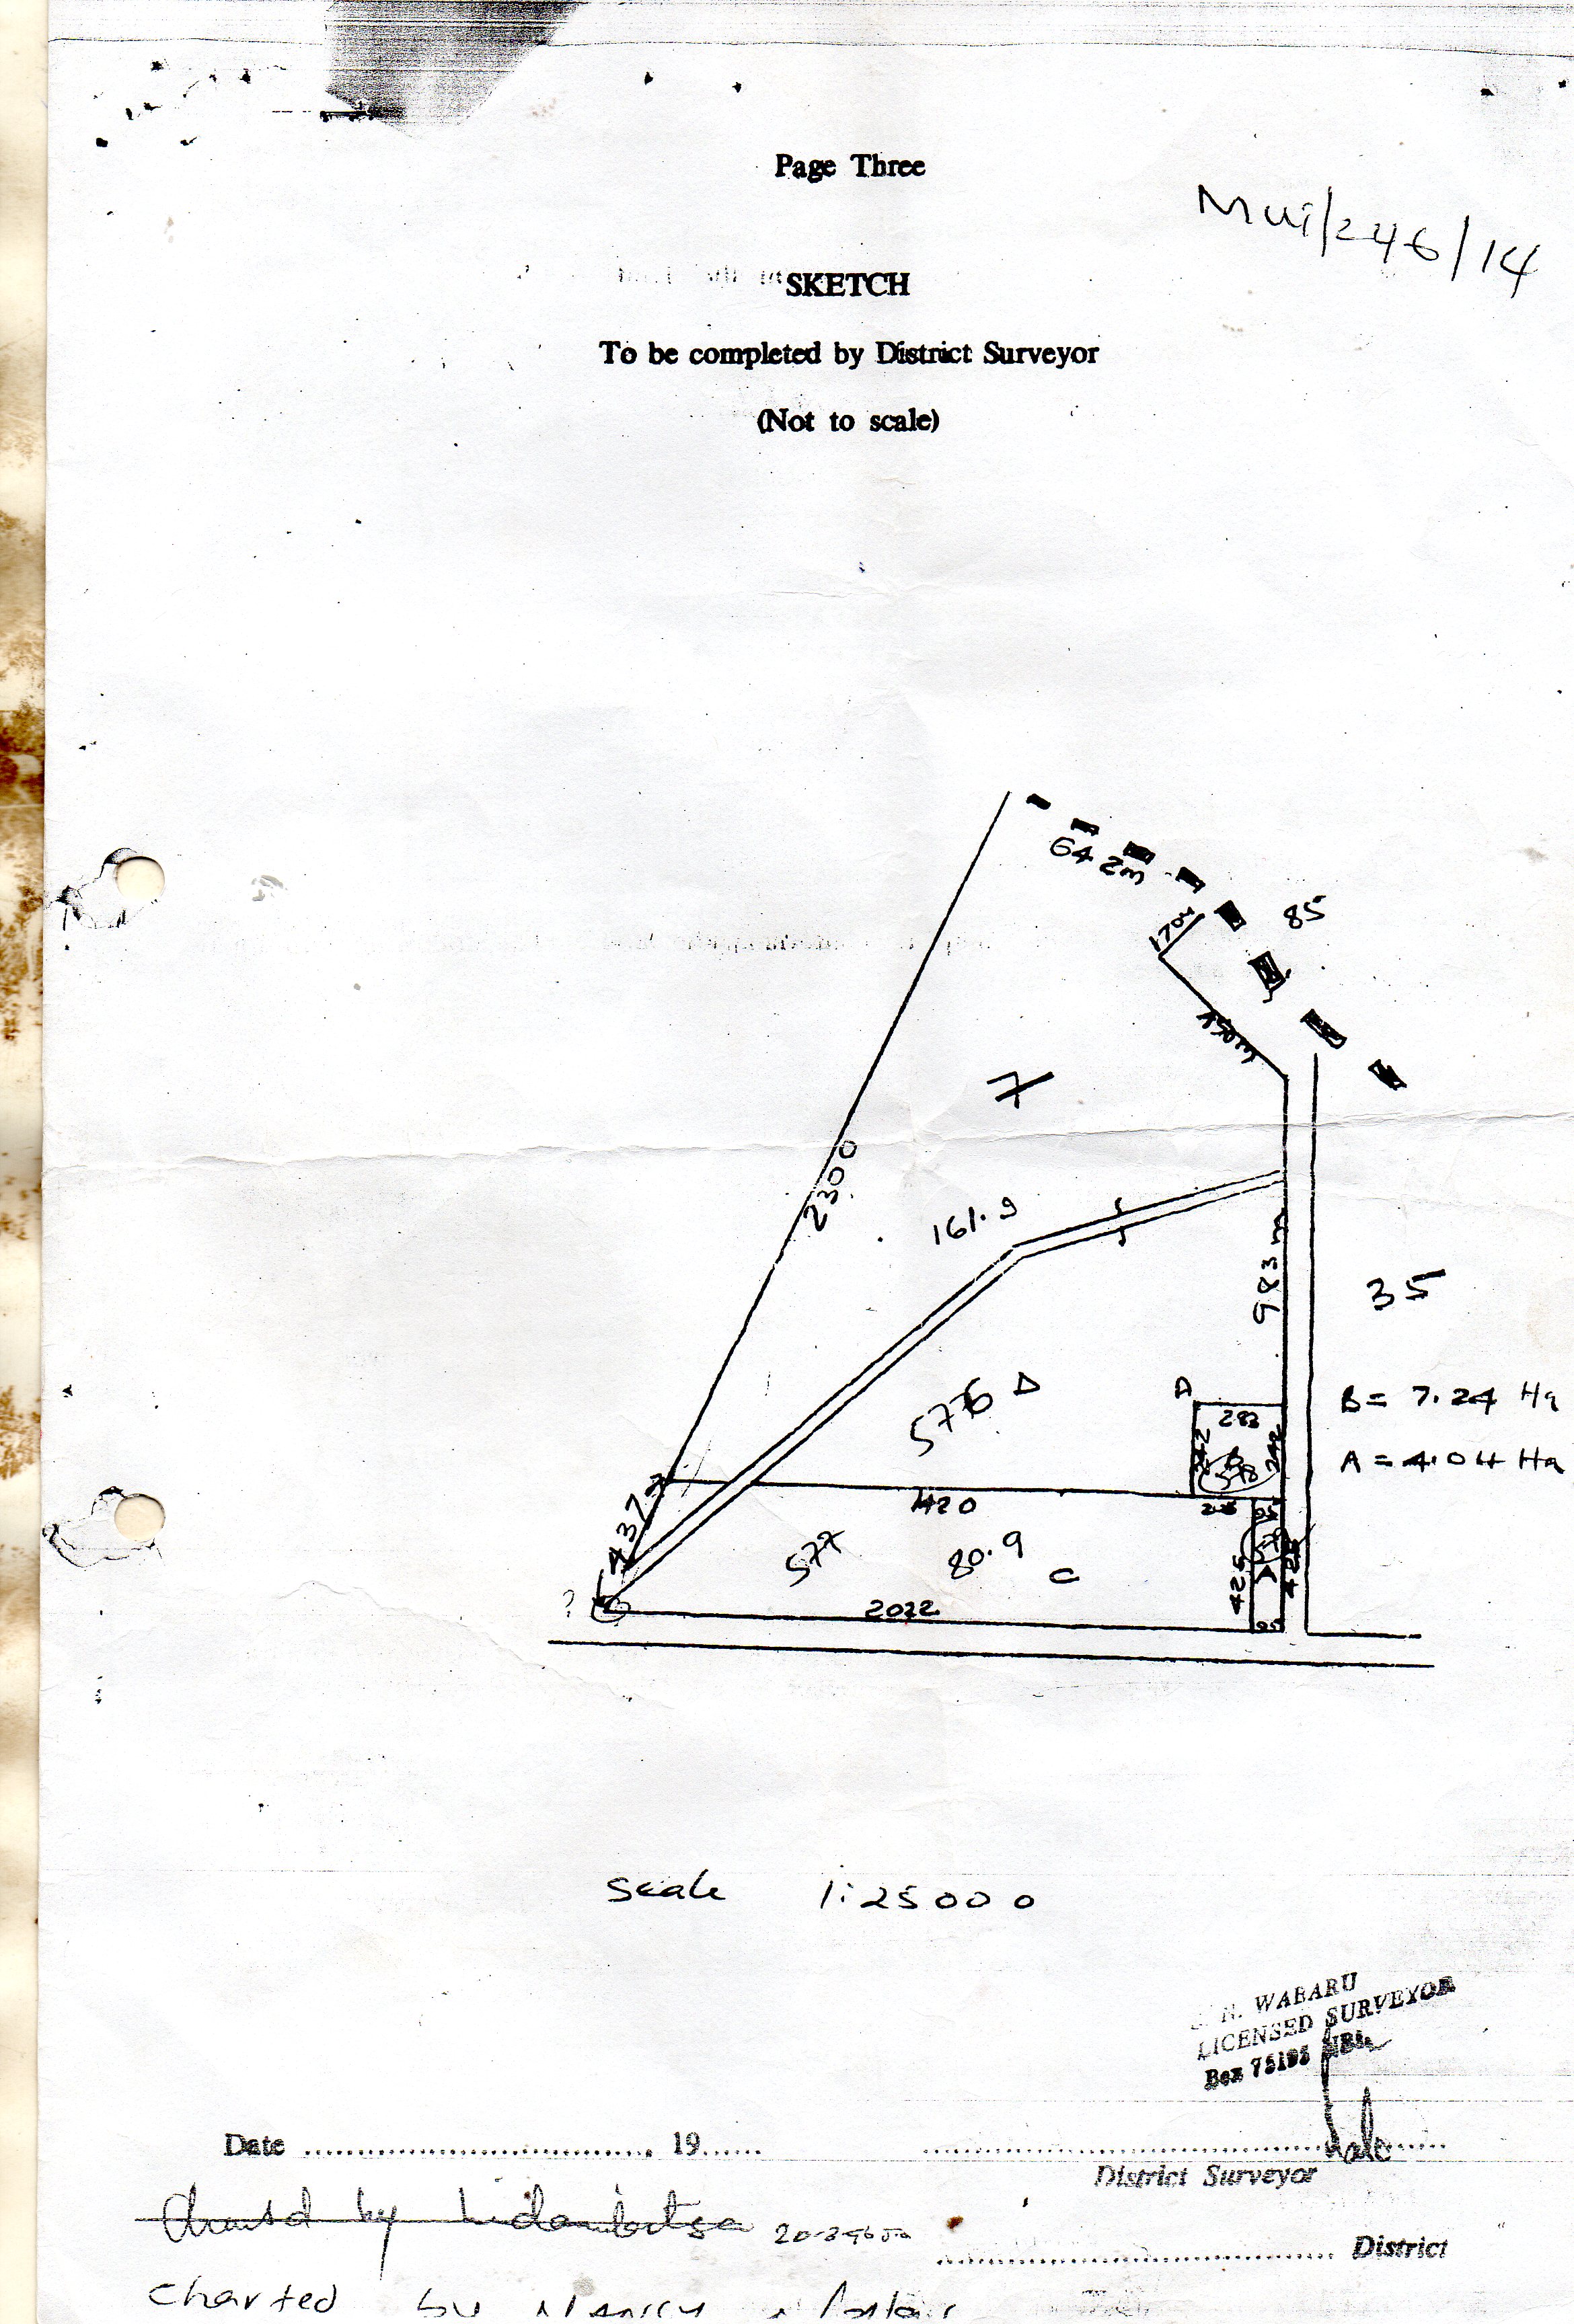 Page Three
Mui/246/14
SKETCH
To be completed by District Surveyor
(Not to scale)
642m
85
170m
450m
7
2300
161.9
983m
35
576 D
A
283
242
242
B = 7.24 Ha
A = 4.04 Ha
437
1420
577
80.9
C
425
A
425
?
2022
95
Scale 1:25000
N. WABARU
LICENSED SURVEYOR
Box 75195 NBI
Date ................................ 19......
District Surveyor
by
District
Charted by